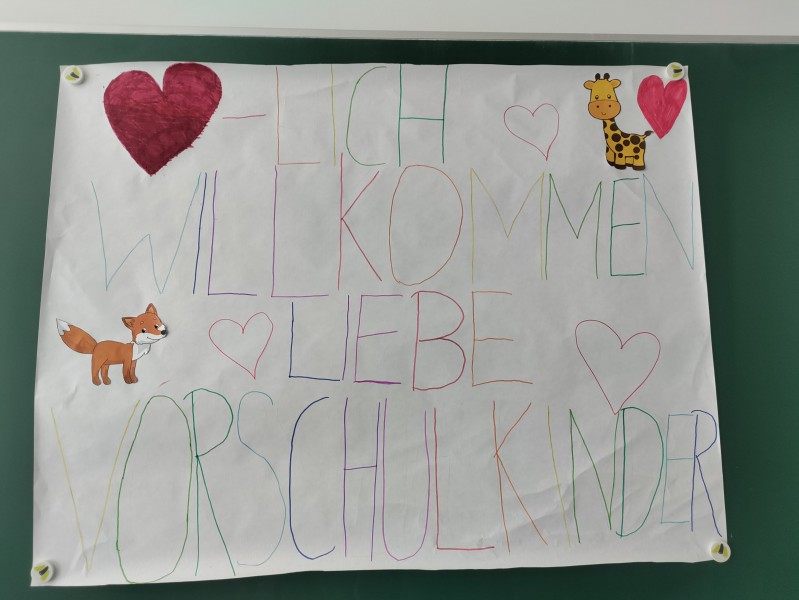 -LICH
WILLKOMMEN
LIEBE
VORSCHULKINDER